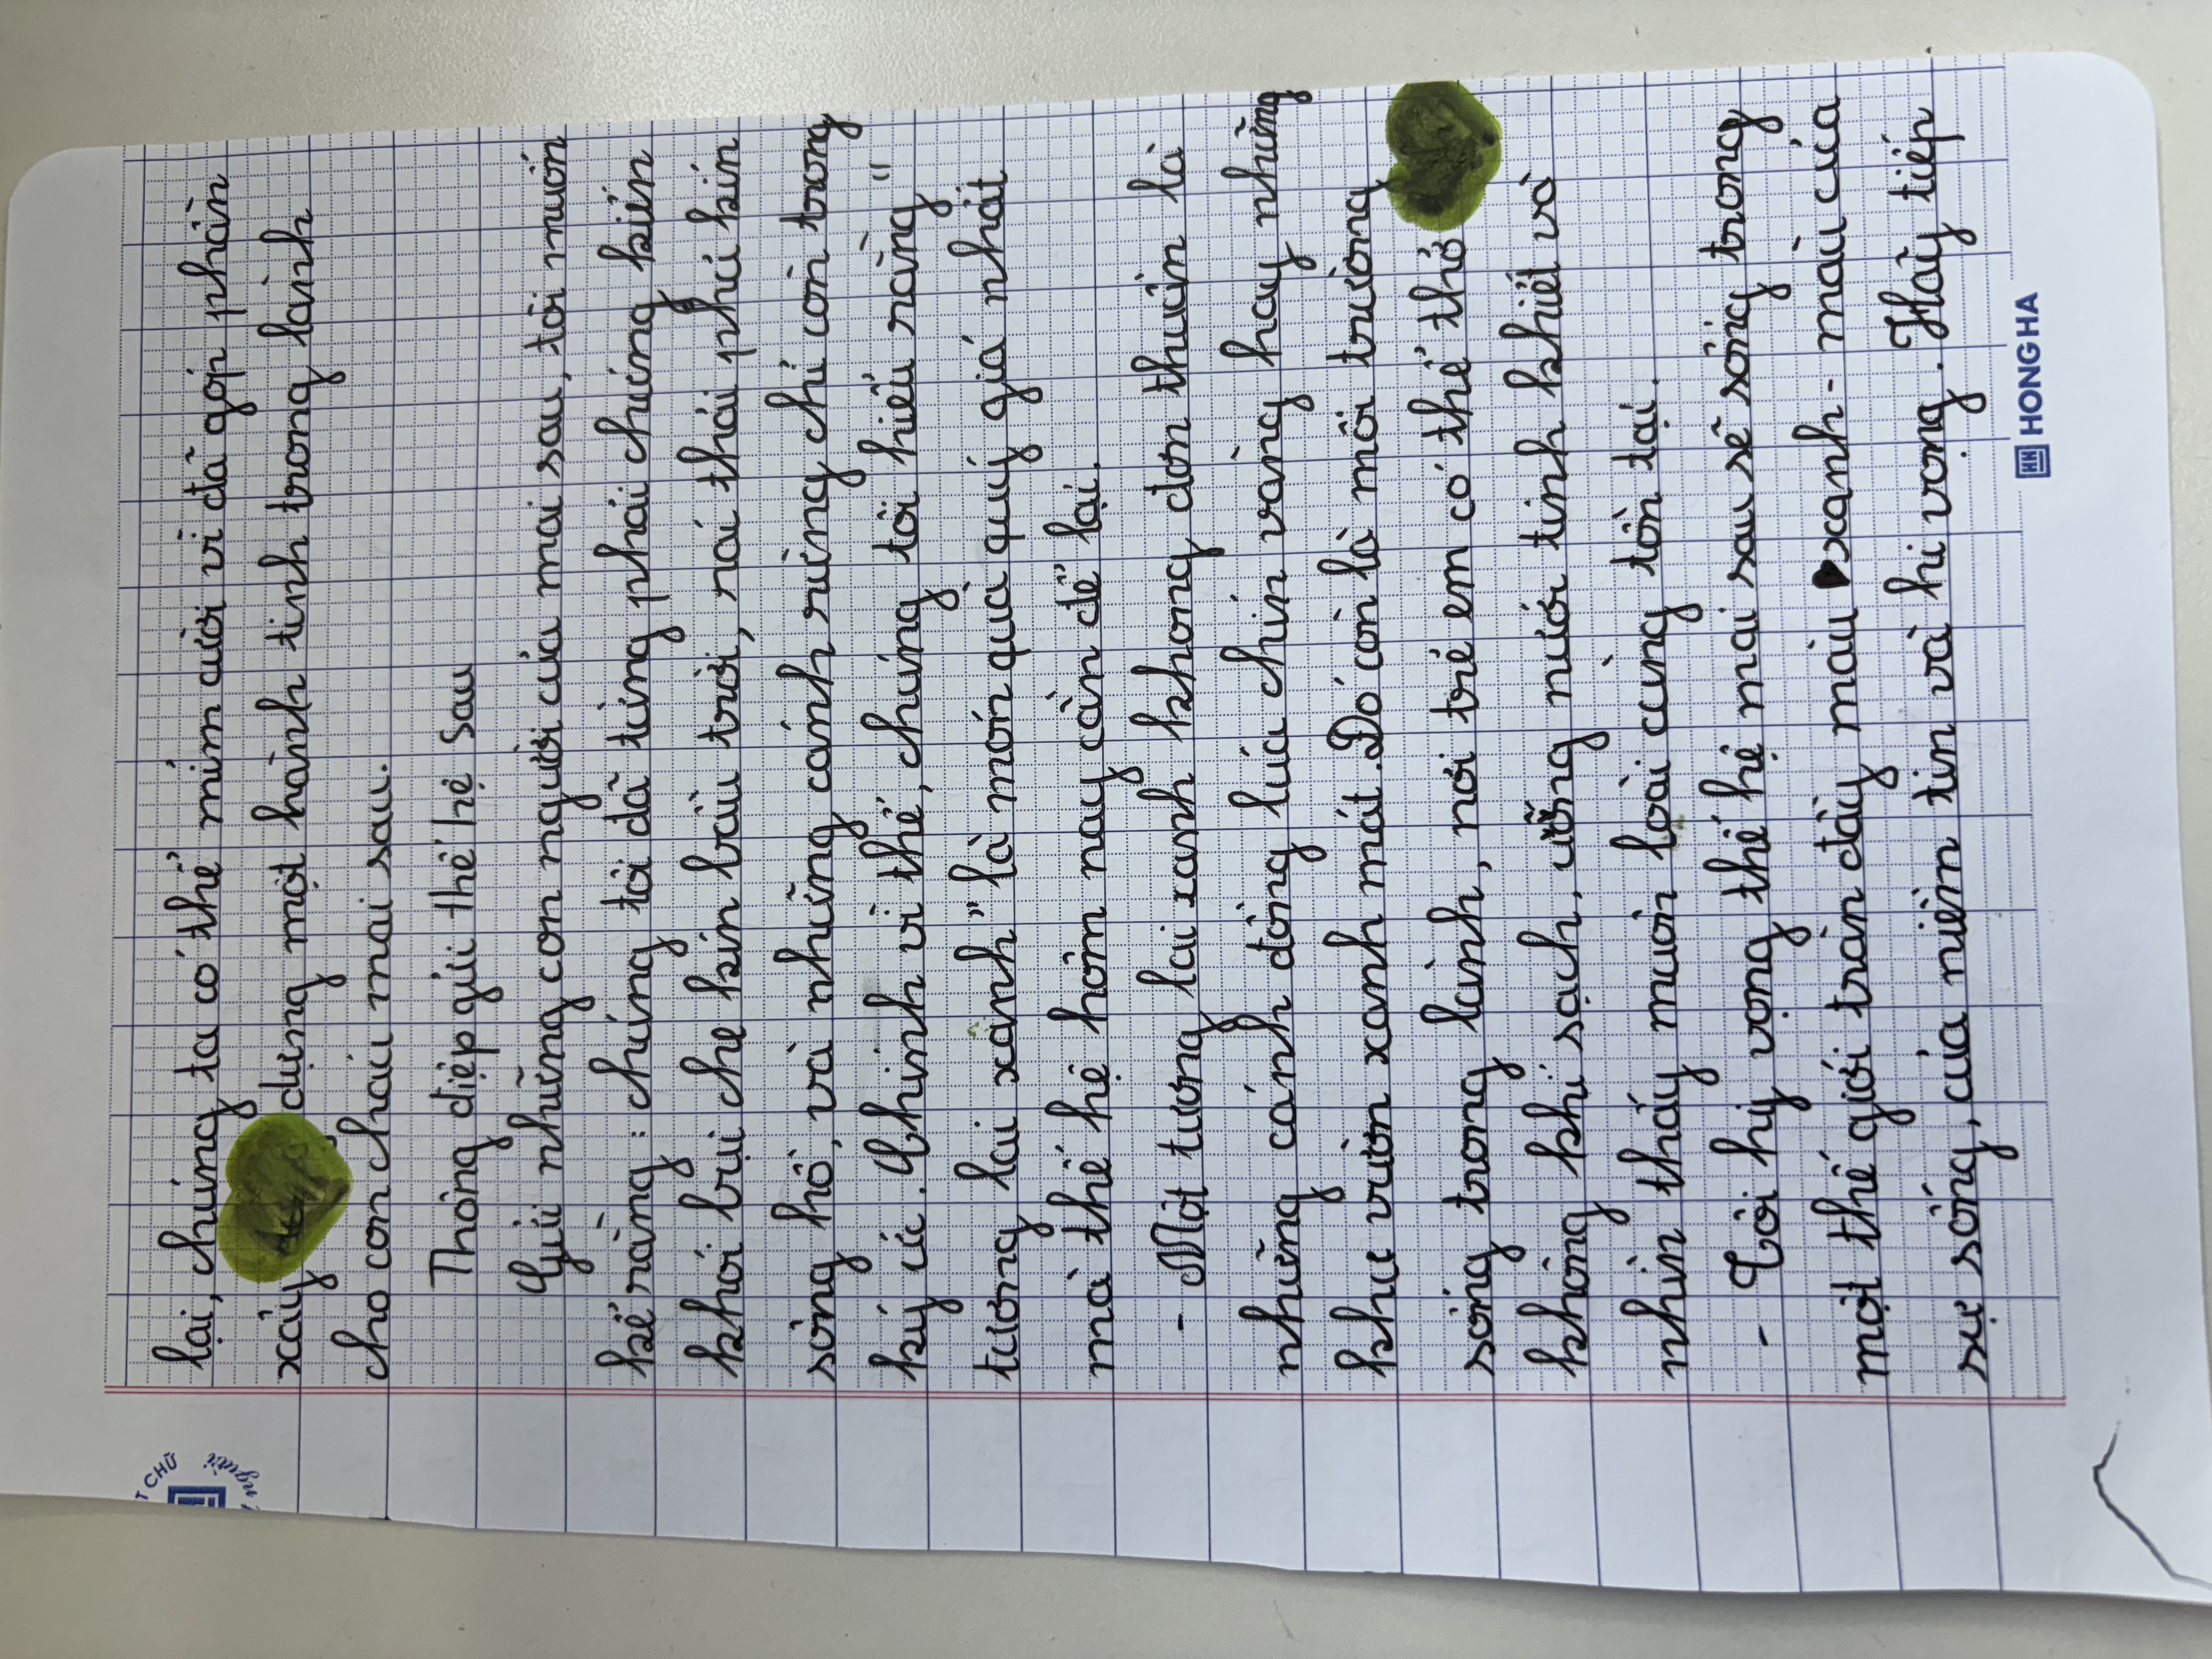 lại, chúng ta có thể mỉm cười vì đã góp phần
xây dựng một hành tinh trong lành
cho con cháu mai sau.
Thông điệp gửi thế hệ sau
Gửi những con người của mai sau, tôi muốn
kể rằng: chúng tôi đã từng phải chứng kiến
khói bụi che kín bầu trời, rác thải phủ kín
sông hồ, và những cánh rừng chỉ còn trong
ký ức. Chính vì thế, chúng tôi hiểu rằng "
tương lai xanh" là món quà quý giá nhất
mà thế hệ hôm nay cần để lại.
- Một tương lai xanh không đơn thuần là
những cánh đồng lúa chín vàng hay những
khu vườn xanh mát. Đó còn là môi trường
sống trong lành, nơi trẻ em có thể thở
không khí sạch, uống nước tinh khiết và
nhìn thấy muôn loài cùng tồn tại.
- Tôi hy vọng thế hệ mai sau sẽ sống trong
một thế giới tràn đầy màu xanh - màu của
sự sống, của niềm tin và hi vọng. Hãy tiếp
HONG HA
T CHỮ
người